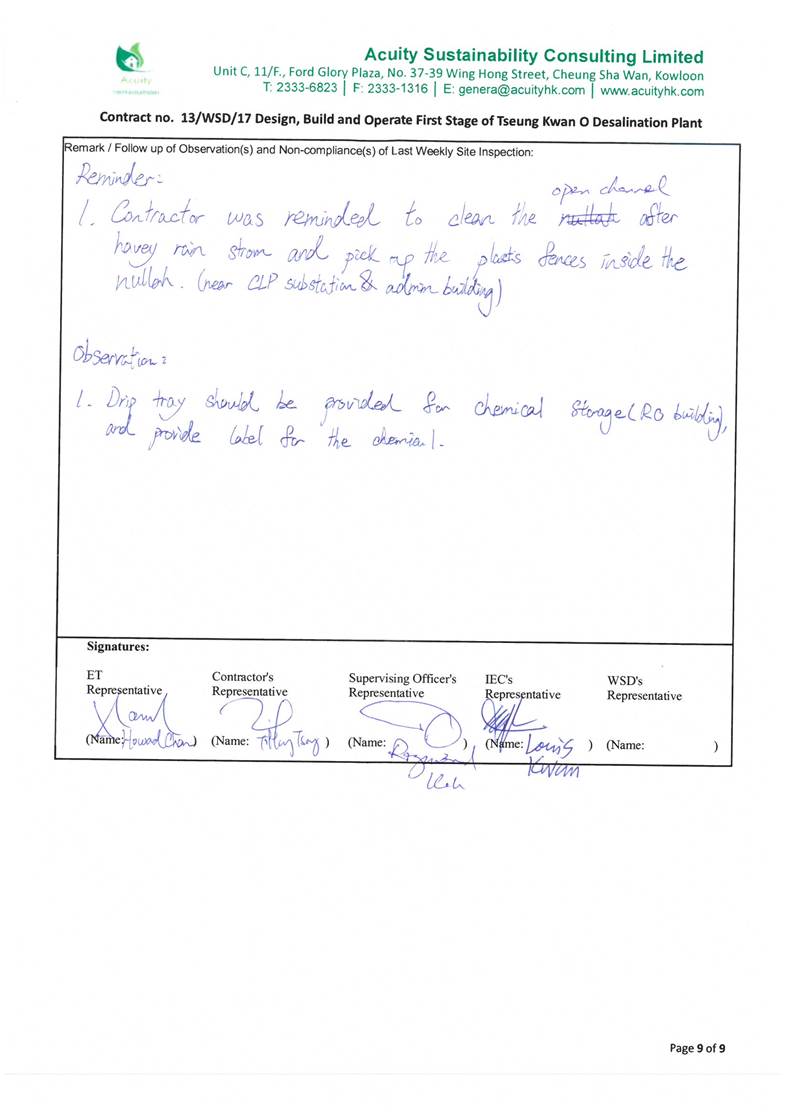 Acuity
Acuity Sustainability Consulting Limited
Unit C, 11/F., Ford Glory Plaza, No. 37-39 Wing Hong Street, Cheung Sha Wan, Kowloon
T: 2333-6823 | F: 2333-1316 | E: genera@acuityhk.com | www.acuityhk.com
Contract no. 13/WSD/17 Design, Build and Operate First Stage of Tseung Kwan O Desalination Plant
Remark / Follow up of Observation(s) and Non-compliance(s) of Last Weekly Site Inspection:
Reminder:
open channel
1. Contractor was reminded to clean the nullah after
havey rain strom and pick up the plastis fences inside the
nullah. (near CLP substation & admin building)
Observation:
1. Drip tray should be provided for chemical storage (RO building),
and provide label for the chemical.
Signatures:
ET Contractor's Supervising Officer's IEC's WSD's
Representative Representative Representative Representative Representative
(Name: Howard Chan) (Name: Tiffany Tsang ) (Name: Raymond ) (Name: Louis ) (Name: )
Kwan
Page 9 of 9